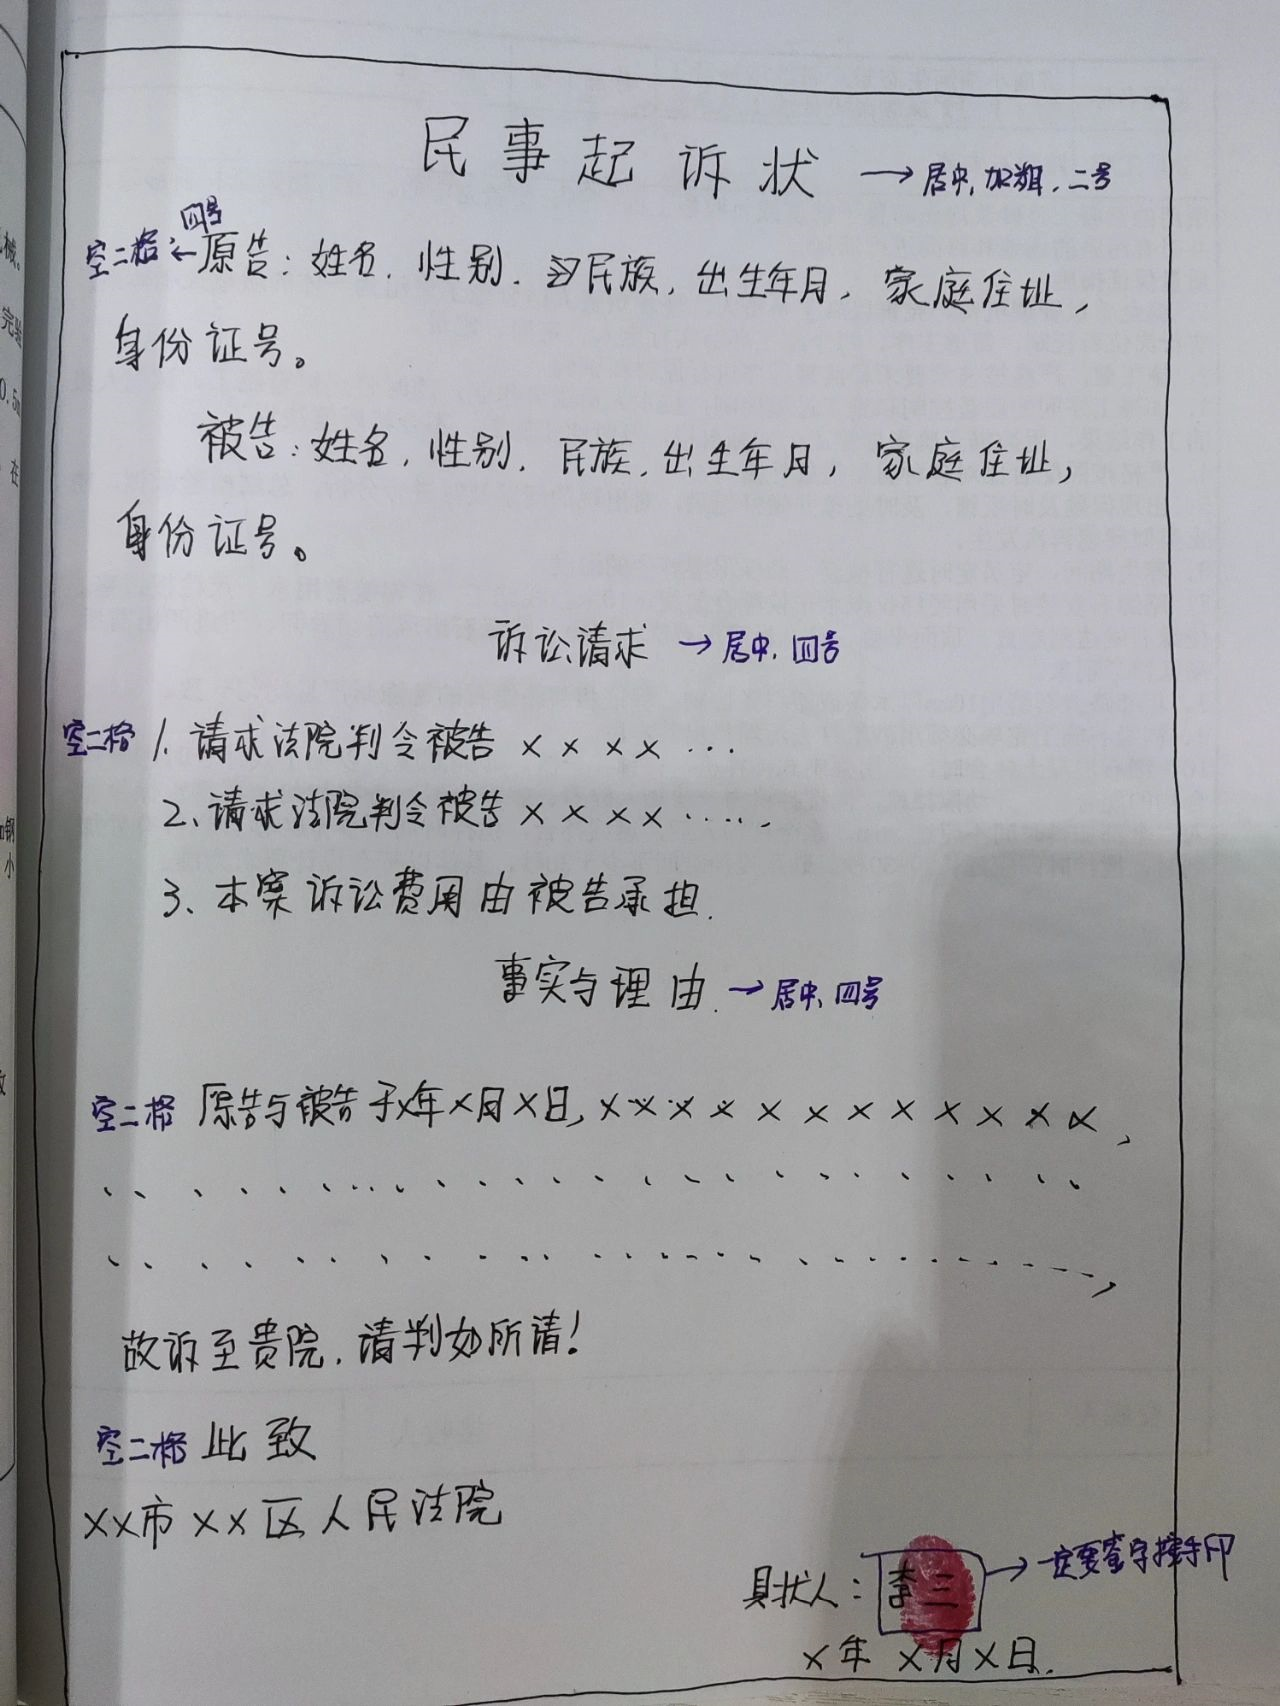 民事起诉状 → 居中，加粗，二号
四号
空二格 ← 原告：姓名，性别，民族，出生年月，家庭住址，
身份证号。
被告：姓名，性别，民族，出生年月，家庭住址，
身份证号。
诉讼请求 → 居中，四号
空二格 1、请求法院判令被告××××…
2、请求法院判令被告××××……
3、本案诉讼费用由被告承担.
事实与理由. → 居中，四号
空二格 原告与被告于×年×月×日，××××××××××××，
故诉至贵院，请判如所请！
空二格 此致
××市××区人民法院
具状人：李三 → 一定要签字按手印
×年×月×日.